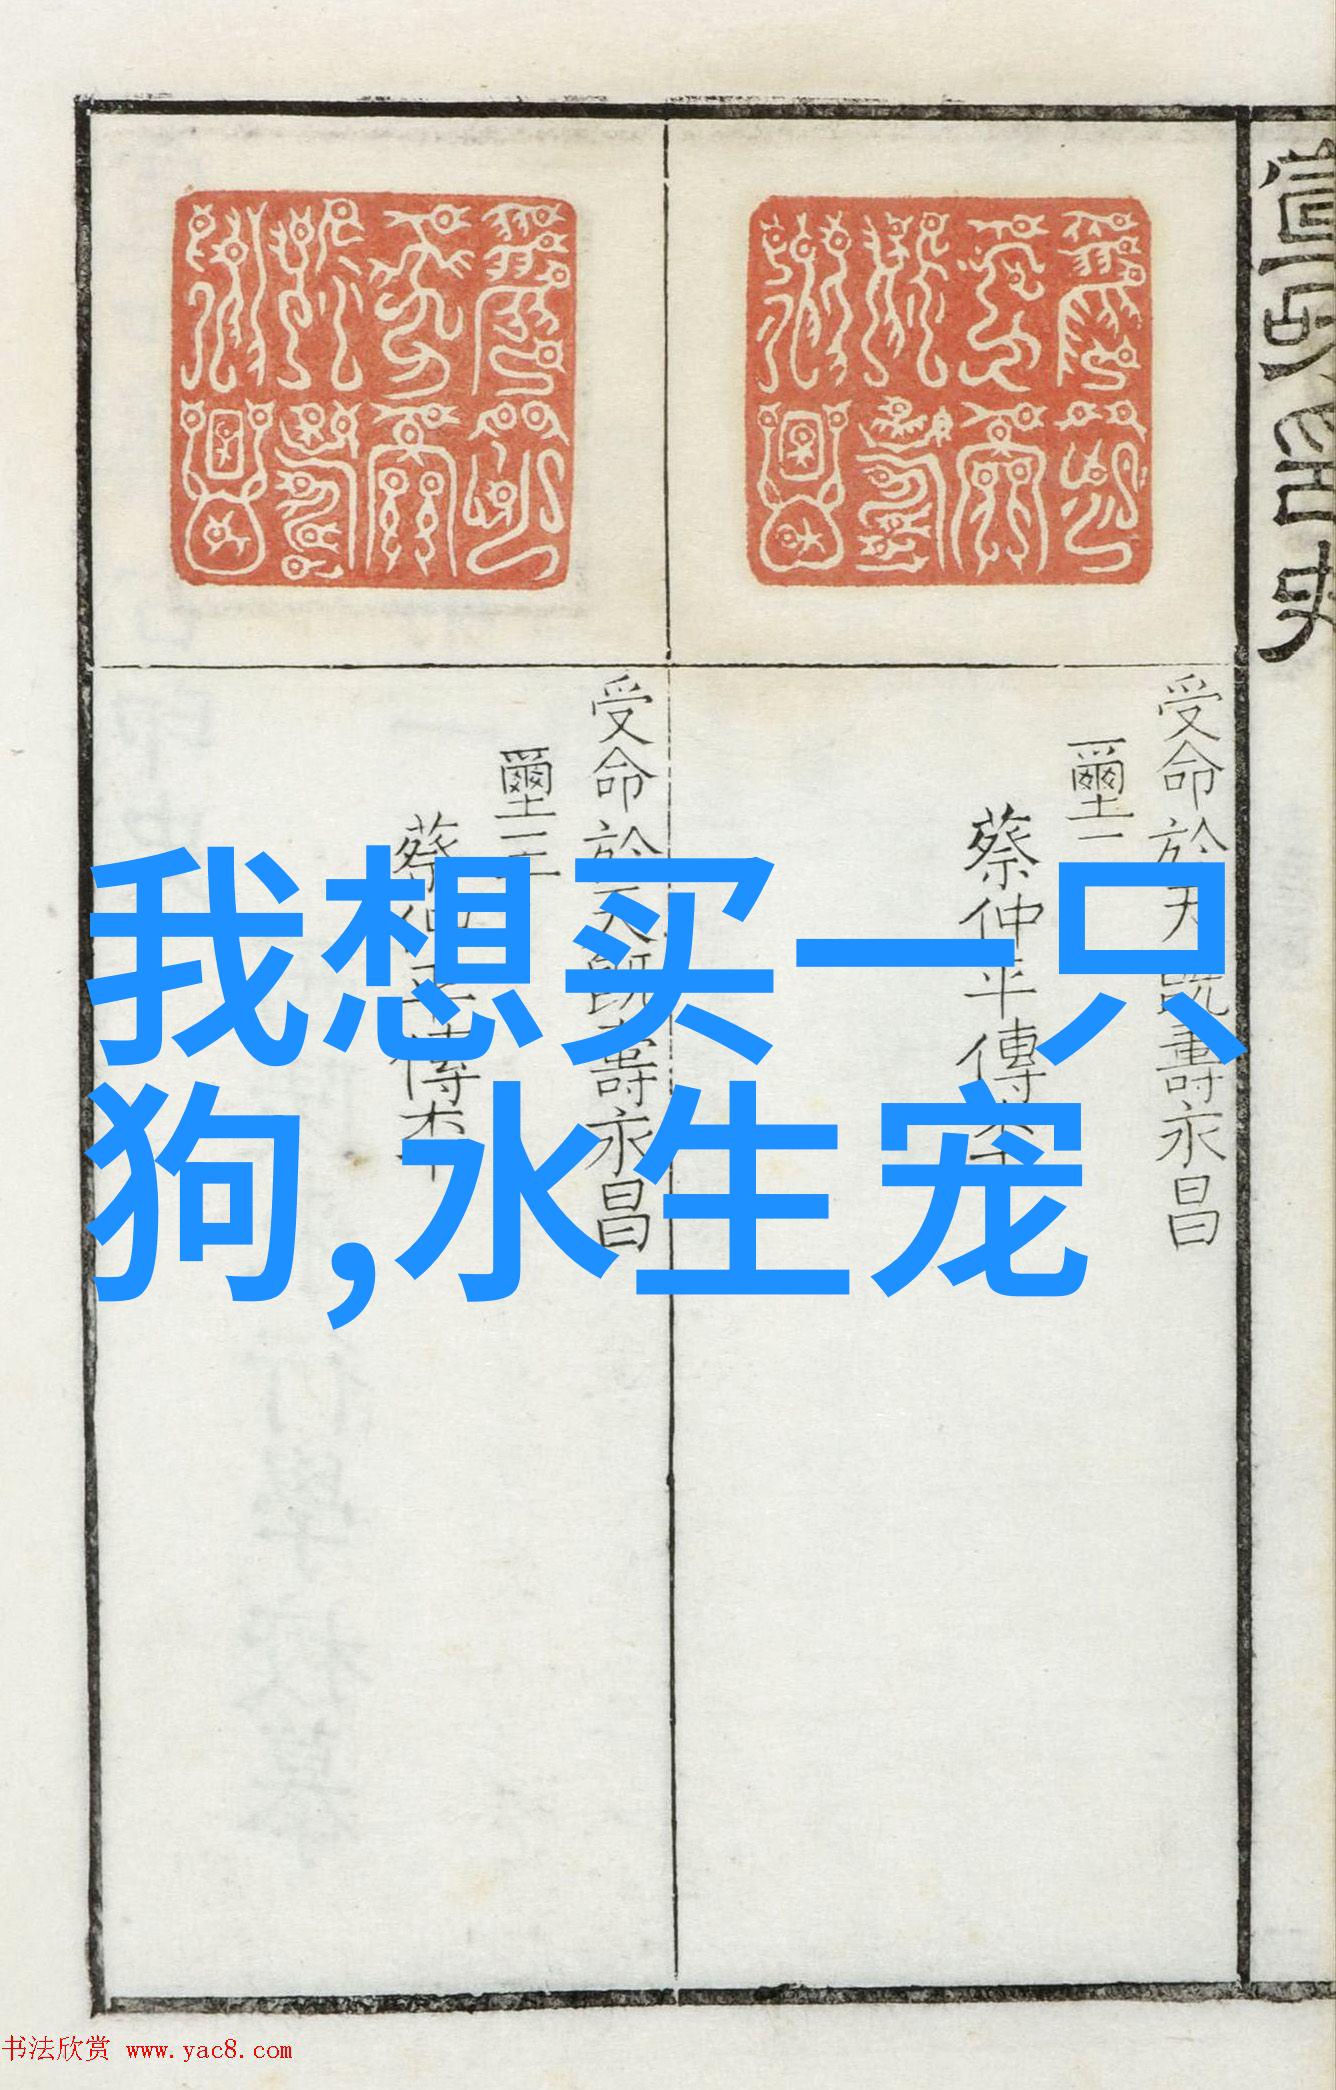 我想买一只
狗,水生宠
受命於天既壽永昌
璽二
蔡仲平傳本
受命於天既壽永昌
璽三
蔡仲平傳本
书法欣赏 www.yac8.com